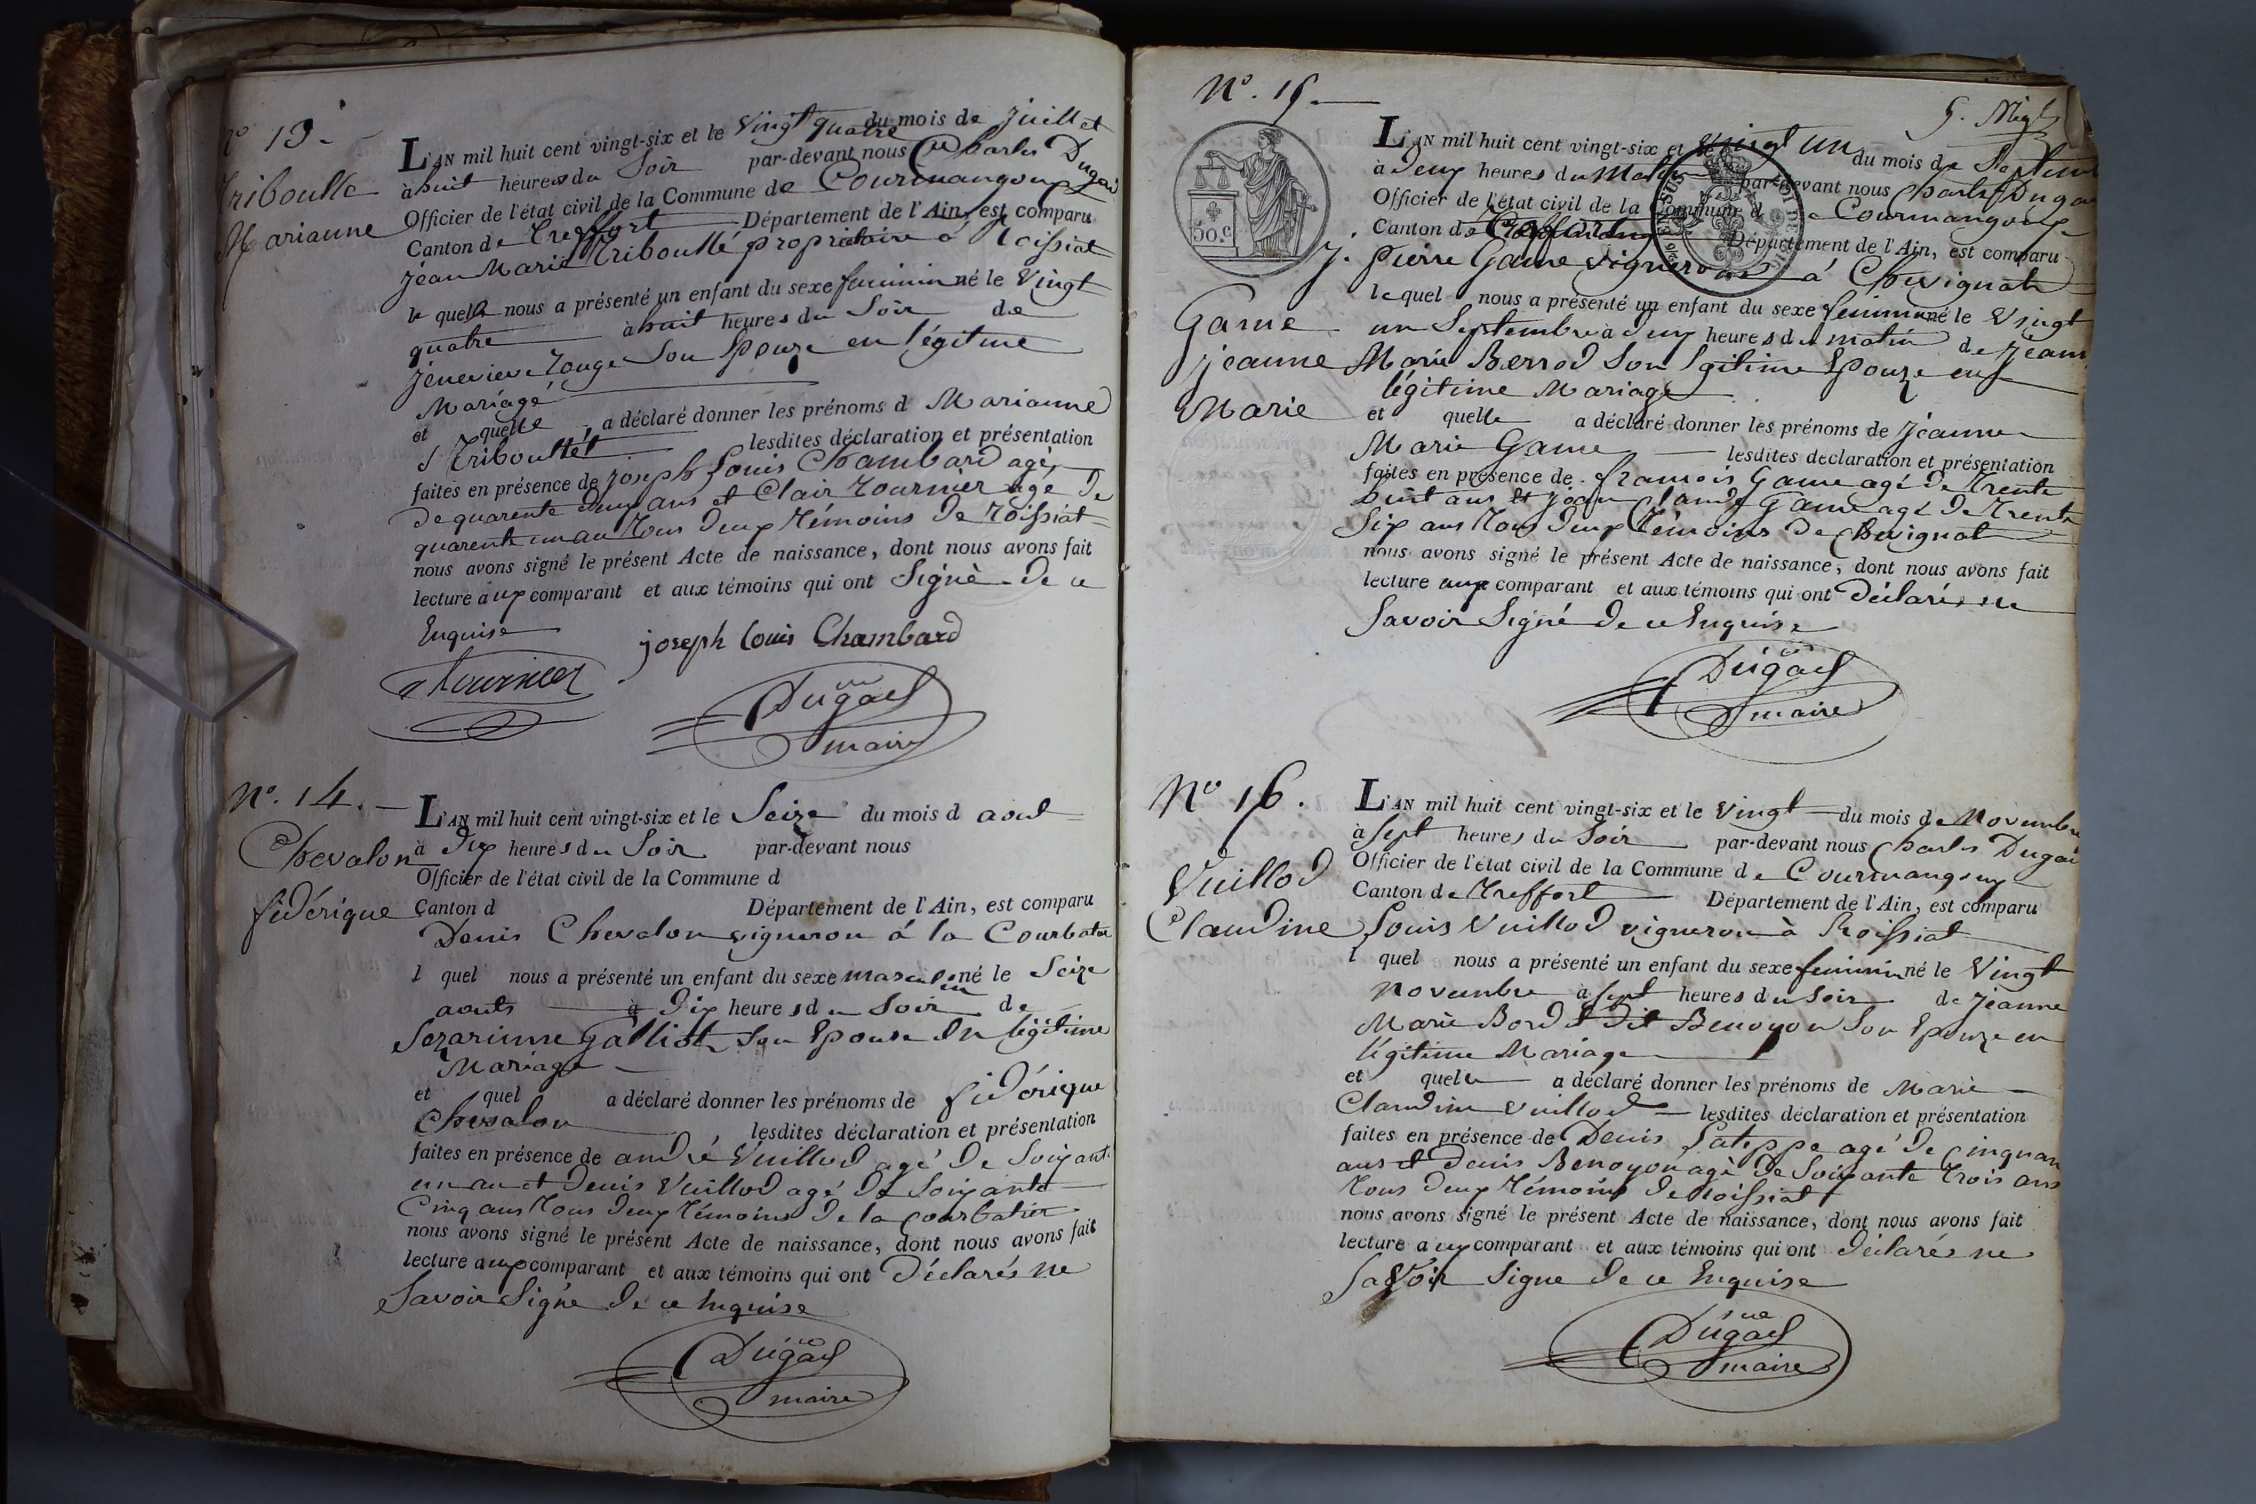 N° 13.
Triboulle
Marianne
L'AN mil huit cent vingt-six et le Vingt quatre du mois de Juillet
à huit heures du Soir par-devant nous Charles Dugad
Officier de l'état civil de la Commune de Courmangoux
Canton de Treffort Département de l'Ain, est comparu
Jean Marie Triboullé propriétaire à Roissiat
le quel nous a présenté un enfant du sexe feminin né le Vingt
quatre à huit heures du Soir de
Jenevieve Rouge Son Epouze en légitime
Mariage
et quelle a déclaré donner les prénoms d Marianne
Triboullét lesdites déclaration et présentation
faites en présence de Joseph Louis Chambard agé
de quarente deux ans et Clair Tournier agé de
quarente un an Tous deux Témoins de Roissiat
nous avons signé le présent Acte de naissance, dont nous avons fait
lecture aux comparant et aux témoins qui ont Signé de ce
Enquise
joseph Louis Chambard
Tournier
Dugad
maire
N°. 14.
Chevalon
fidérique
L'AN mil huit cent vingt-six et le Seize du mois d aout
à Dix heures du Soir par-devant nous
Officier de l'état civil de la Commune d
Canton d Département de l'Ain, est comparu
Denis Chevalon vigneron à la Courbatière
l quel nous a présenté un enfant du sexe masculin né le Seize
aouts à Dix heures du Soir de
Sezarinne Galliot Son Epouse En légitime
Mariage
et quel a déclaré donner les prénoms de fidérique
Chevalon lesdites déclaration et présentation
faites en présence de andré Vuillod agé de Soixante
un an et Denis Vuillod agé de Soixante
Cinq ans Tous deux Témoins de la Courbatière
nous avons signé le présent Acte de naissance, dont nous avons fait
lecture aux comparant et aux témoins qui ont Déclarés ne
Savoir Signé de ce Enquise
Dugad
maire
N°. 15.
50.c
Game
jeanne
Marie
L'AN mil huit cent vingt-six et le Vingt un du mois de Septembre
à Deux heures du Matin par-devant nous Charles Dugad
Officier de l'état civil de la Commune de Courmangoux
Canton de Treffort Département de l'Ain, est comparu
Pierre Game vigneron à Chevignat
le quel nous a présenté un enfant du sexe feminin né le Vingt
un Septembre à deux heures du matin de Jeanne
Marie Berrod Son lgitime Epouze en
légitime Mariage
et quelle a déclaré donner les prénoms de Jeanne
Marie Game lesdites déclaration et présentation
faites en présence de francois Game agé de Trente
huit ans et Jean Claude Game agé de Trente
Six ans Tous deux Témoins de Chevignat
nous avons signé le présent Acte de naissance, dont nous avons fait
lecture aux comparant et aux témoins qui ont Déclarés ne
Savoir Signé de ce Enquise
Dugad
maire
N° 16.
Vuillod
Claudine
L'AN mil huit cent vingt-six et le Vingt du mois de Novembre
à Sept heures du Soir par-devant nous Charles Dugad
Officier de l'état civil de la Commune de Courmangoux
Canton de Treffort Département de l'Ain, est comparu
Louis Vuillod vigneron à Roissiat
l quel nous a présenté un enfant du sexe feminin né le Vingt
Novembre à Sept heures du Soir de Jeanne
Marie Bord Dit Benoyon Son Epouze en
légitime Mariage
et quelle a déclaré donner les prénoms de Marie
Claudine Vuillod lesdites déclaration et présentation
faites en présence de Denis agé de Cinquante
ans et Denis Benoyon agé de Soixante Trois ans
Tous deux Témoins de Roissiat
nous avons signé le présent Acte de naissance, dont nous avons fait
lecture aux comparant et aux témoins qui ont Déclarés ne
Savoir Signe de ce Enquise
Dugad
maire